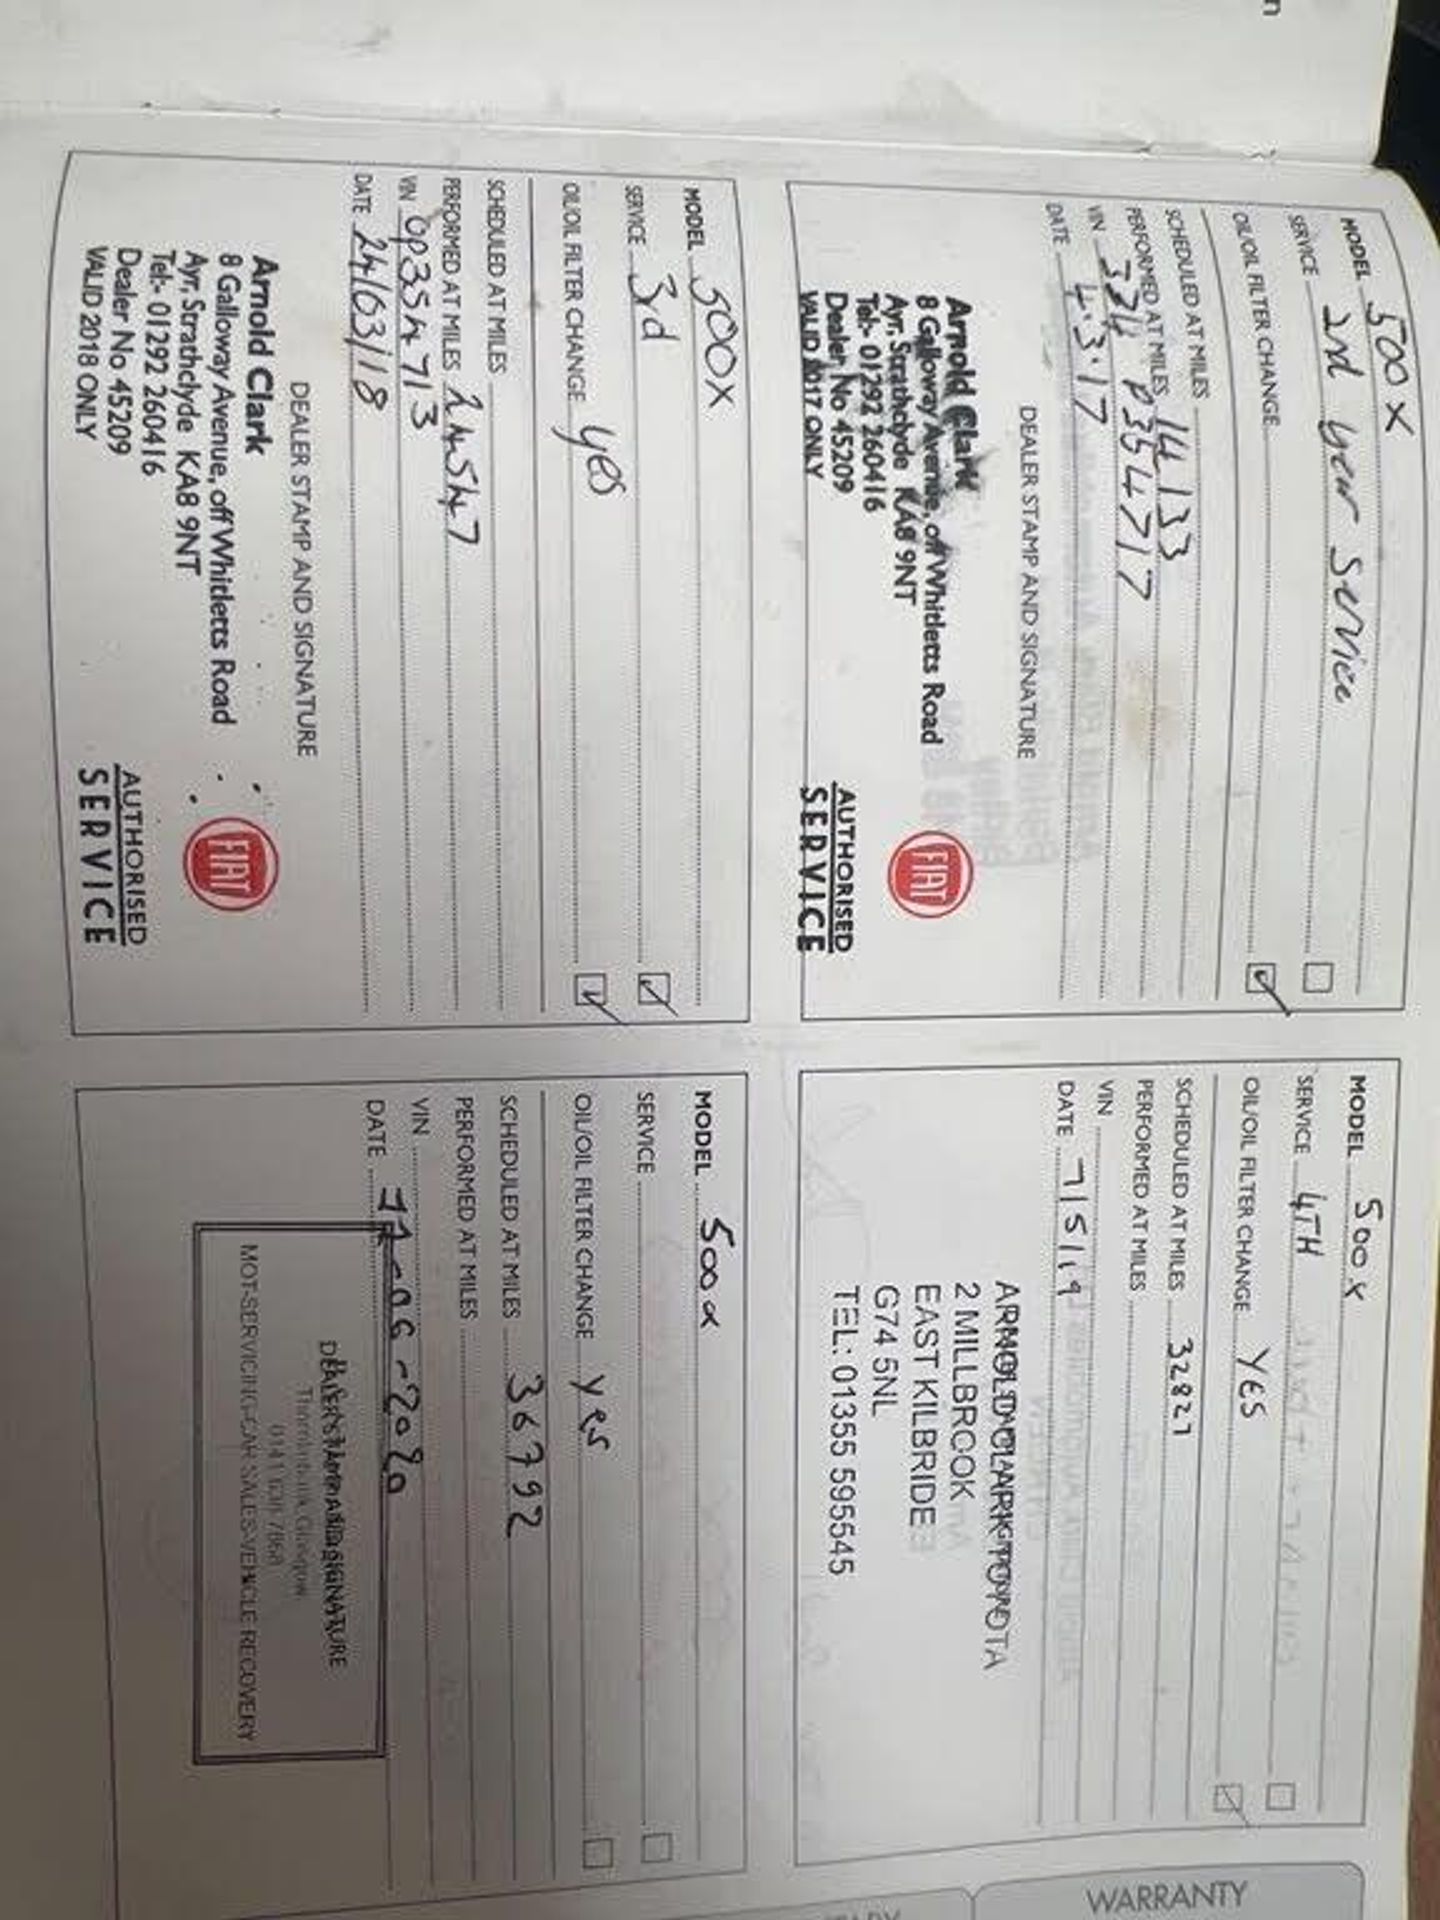 MODEL 500X
SERVICE 2nd year service
OIL/OIL FILTER CHANGE
SCHEDULED AT MILES
PERFORMED AT MILES 14133
VIN
DATE 4.3.17
DEALER STAMP AND SIGNATURE
Arnold Clark
8 Galloway Avenue, off Whitletts Road
Ayr, Strathclyde KA8 9NT
Tel:- 01292 260416
Dealer No 45209
VALID 2017 ONLY
FIAT
AUTHORISED
SERVICE
MODEL 500X
SERVICE 3rd
OIL/OIL FILTER CHANGE yes
SCHEDULED AT MILES
PERFORMED AT MILES 24547
VIN 0P354713
DATE 24/03/18
DEALER STAMP AND SIGNATURE
Arnold Clark
8 Galloway Avenue, off Whitletts Road
Ayr, Strathclyde KA8 9NT
Tel:- 01292 260416
Dealer No 45209
VALID 2018 ONLY
FIAT
AUTHORISED
SERVICE
MODEL 500X
SERVICE 4TH
OIL/OIL FILTER CHANGE YES
SCHEDULED AT MILES 32827
PERFORMED AT MILES
VIN
DATE 7/5/19
ARNOLD CLARK TOYOTA
2 MILLBROOK
EAST KILBRIDE
G74 5NL
TEL: 01355 595545
MODEL 500X
SERVICE
OIL/OIL FILTER CHANGE yes
SCHEDULED AT MILES 36792
PERFORMED AT MILES
VIN
DATE 11-06-2020
DEALER STAMP AND SIGNATURE
Thornliebank, Glasgow
MOT-SERVICING-CAR SALES-VEHICLE RECOVERY
WARRANTY